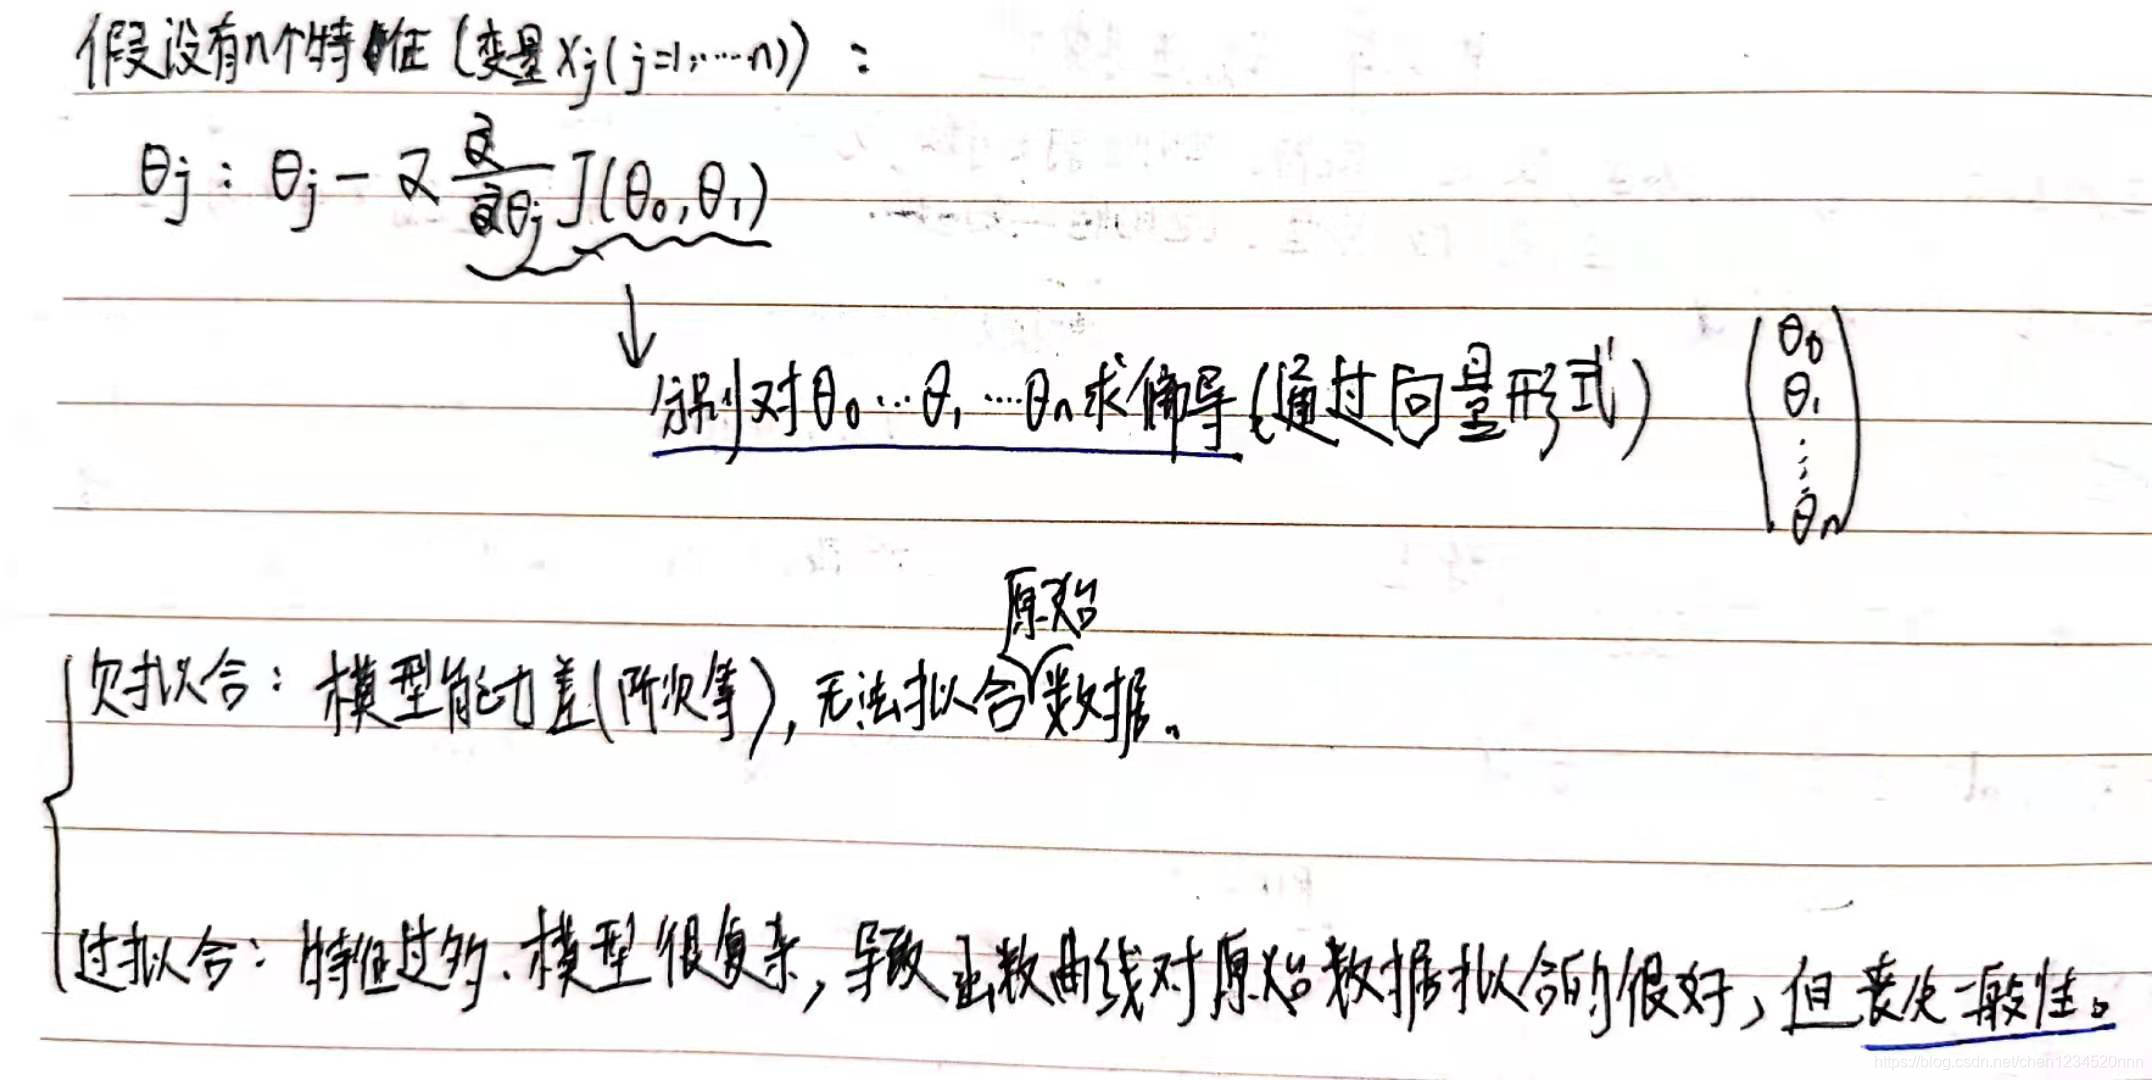 假设有n个特征（变量xj(j=1,……n)）：
θj : θj - α ∂/∂θj J(θ0,θ1)
↓
分别对θ0…θ1…θn求偏导（通过向量形式）
(θ0
θ1
⋮
θn)
原始
欠拟合：模型能力差(阶次等)，无法拟合数据。
过拟合：特征过多、模型很复杂，导致函数曲线对原始数据拟合的很好，但丧失一般性。
https://blog.csdn.net/chen1234520nnn